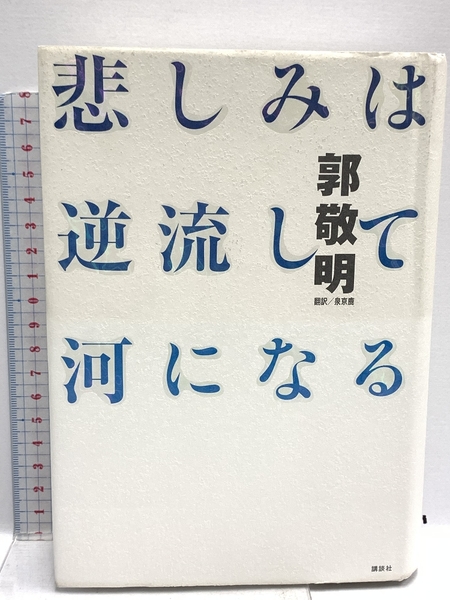 悲しみは
逆流して
河になる
郭敬明
翻訳/泉京鹿
講談社